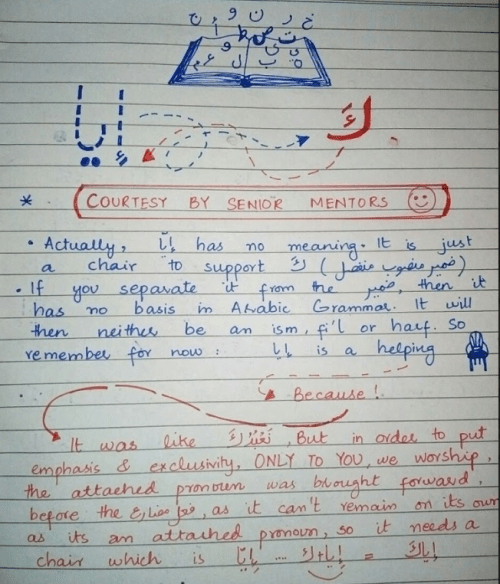 خ ر ن و ج
أ ط ض ت
و ي
م ع ل ب ه
إيا
كَ
* COURTESY BY SENIOR MENTORS
• Actually, إِيَّا has no meaning. It is just
a chair to support كَ (ضمير منصوب منفصل)
• If you separate it from the ضمير, then it
has no basis in Arabic Grammar. It will
then neither be an ism, fi'l or harf. So
remember for now : إيا is a helping
Because!
It was like نَعْبُدُكَ, But in order to put
emphasis & exclusivity, ONLY TO YOU, we worship,
the attached pronoun was brought forward,
before the فعل مضارع, as it can't remain on its own
as its an attached pronoun, so it needs a
chair which is إِيَّا ... إيا+ك = إياكَ